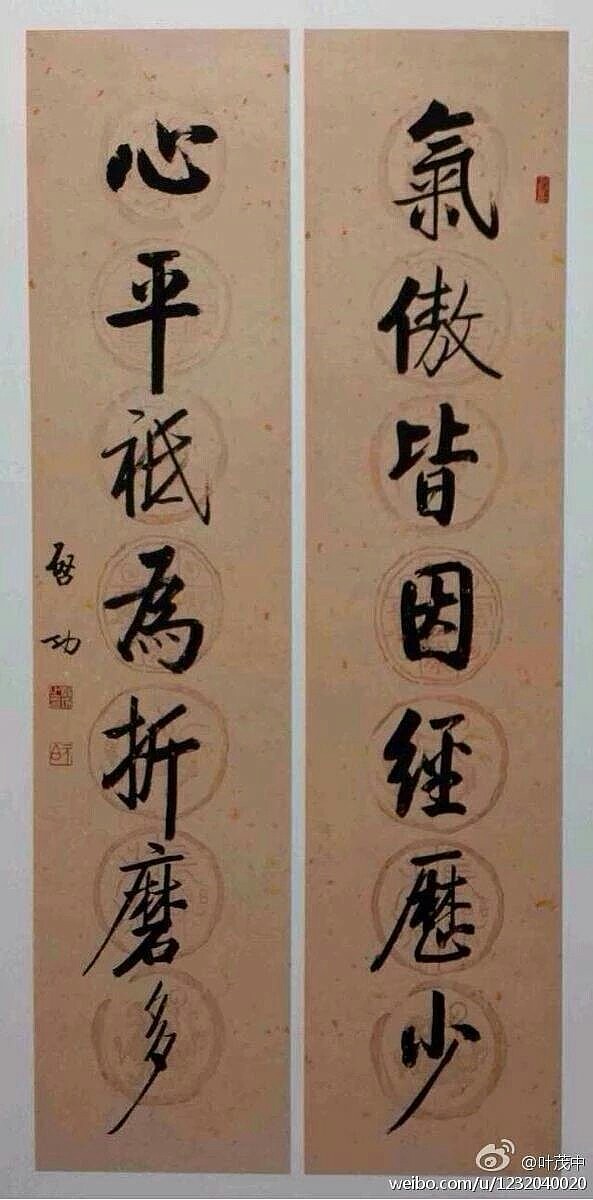 氣傲皆因經歷少
心平祇為折磨多
啓功
@叶茂中
weibo.com/u/1232040020